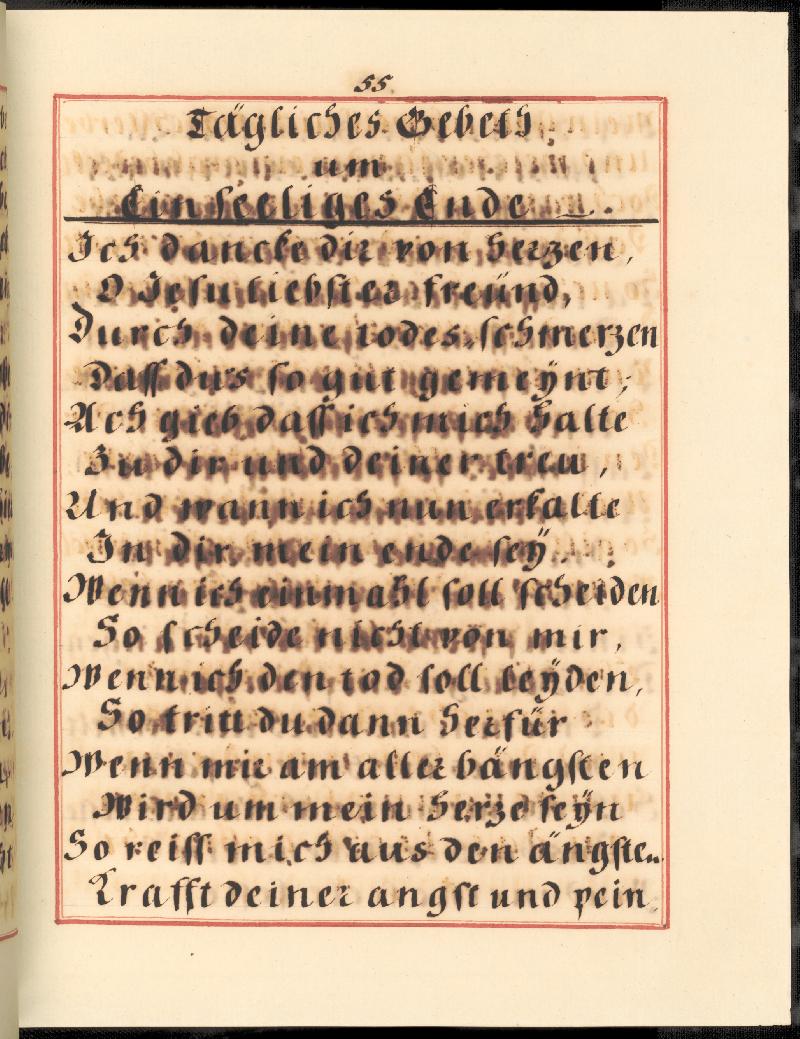 55
Tägliches Gebeth
um
Ein seeliges Ende.
Ich dancke dir von herzen,
O Jesu liebster freünd,
Durch deine todes. schmerzen
Dass du's so gut gemeÿnt;
Ach gieb dass ich mich halte
Zu dir und deiner treu,
Und wann ich nun erkalte
In dir mein ende seÿ.
Wenn ich einmahl soll scheiden
So scheide nicht von mir,
Wenn ich den tod soll leÿden,
So tritt du dann herfür
Wenn mir am aller bängsten
Wird um mein herze seÿn
So reiss mich aus den ängste..
Krafft deiner angst und pein.